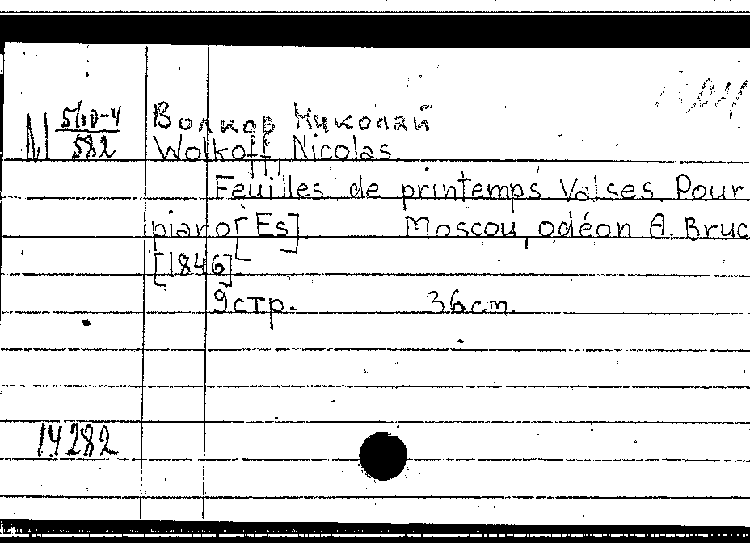 Волков Николай
М 582 Wolkoff Nicolas
Feuilles de printemps Valses. Pour
piano [Es] Moscou, odéon A. Bruc
[1846].
9 стр. 36 cm.
14282